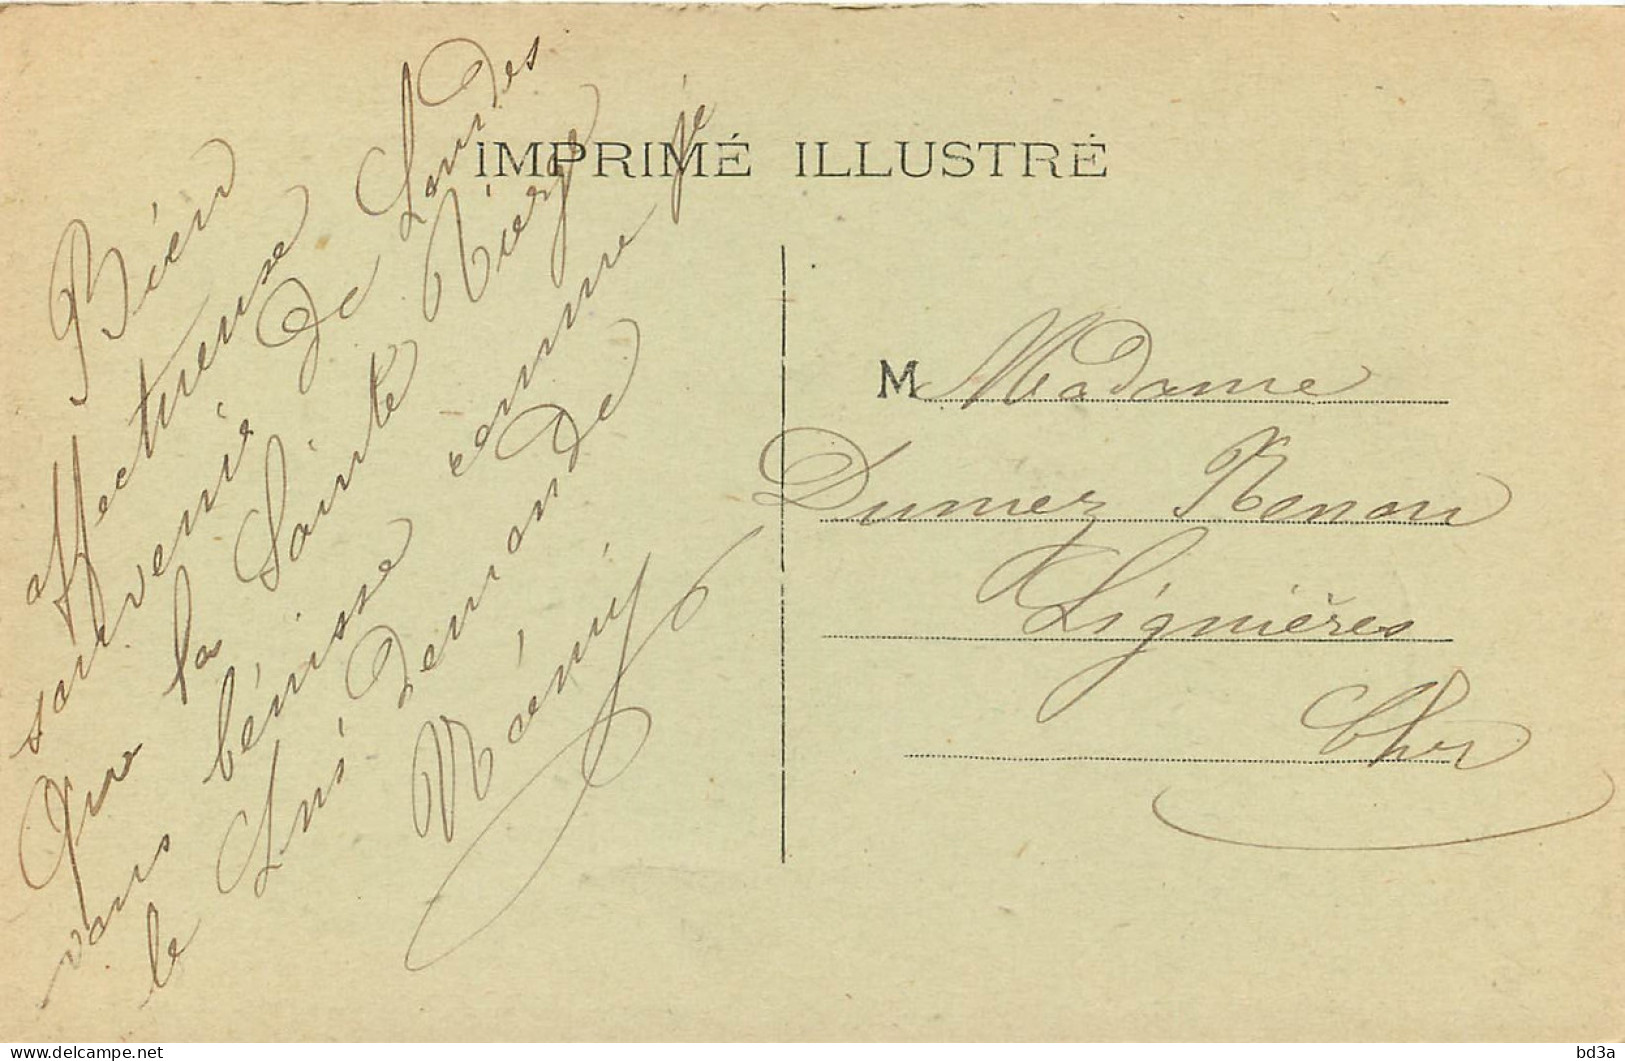 IMPRIMÉ ILLUSTRÉ
Bien
affectueuse
souvenir de Lourdes
Que la Sainte Vierge
vous bénisse comme je
le Lui demande
M Madame
Dumez Renon
Lignières
Cher
delcampe.net
bd3a